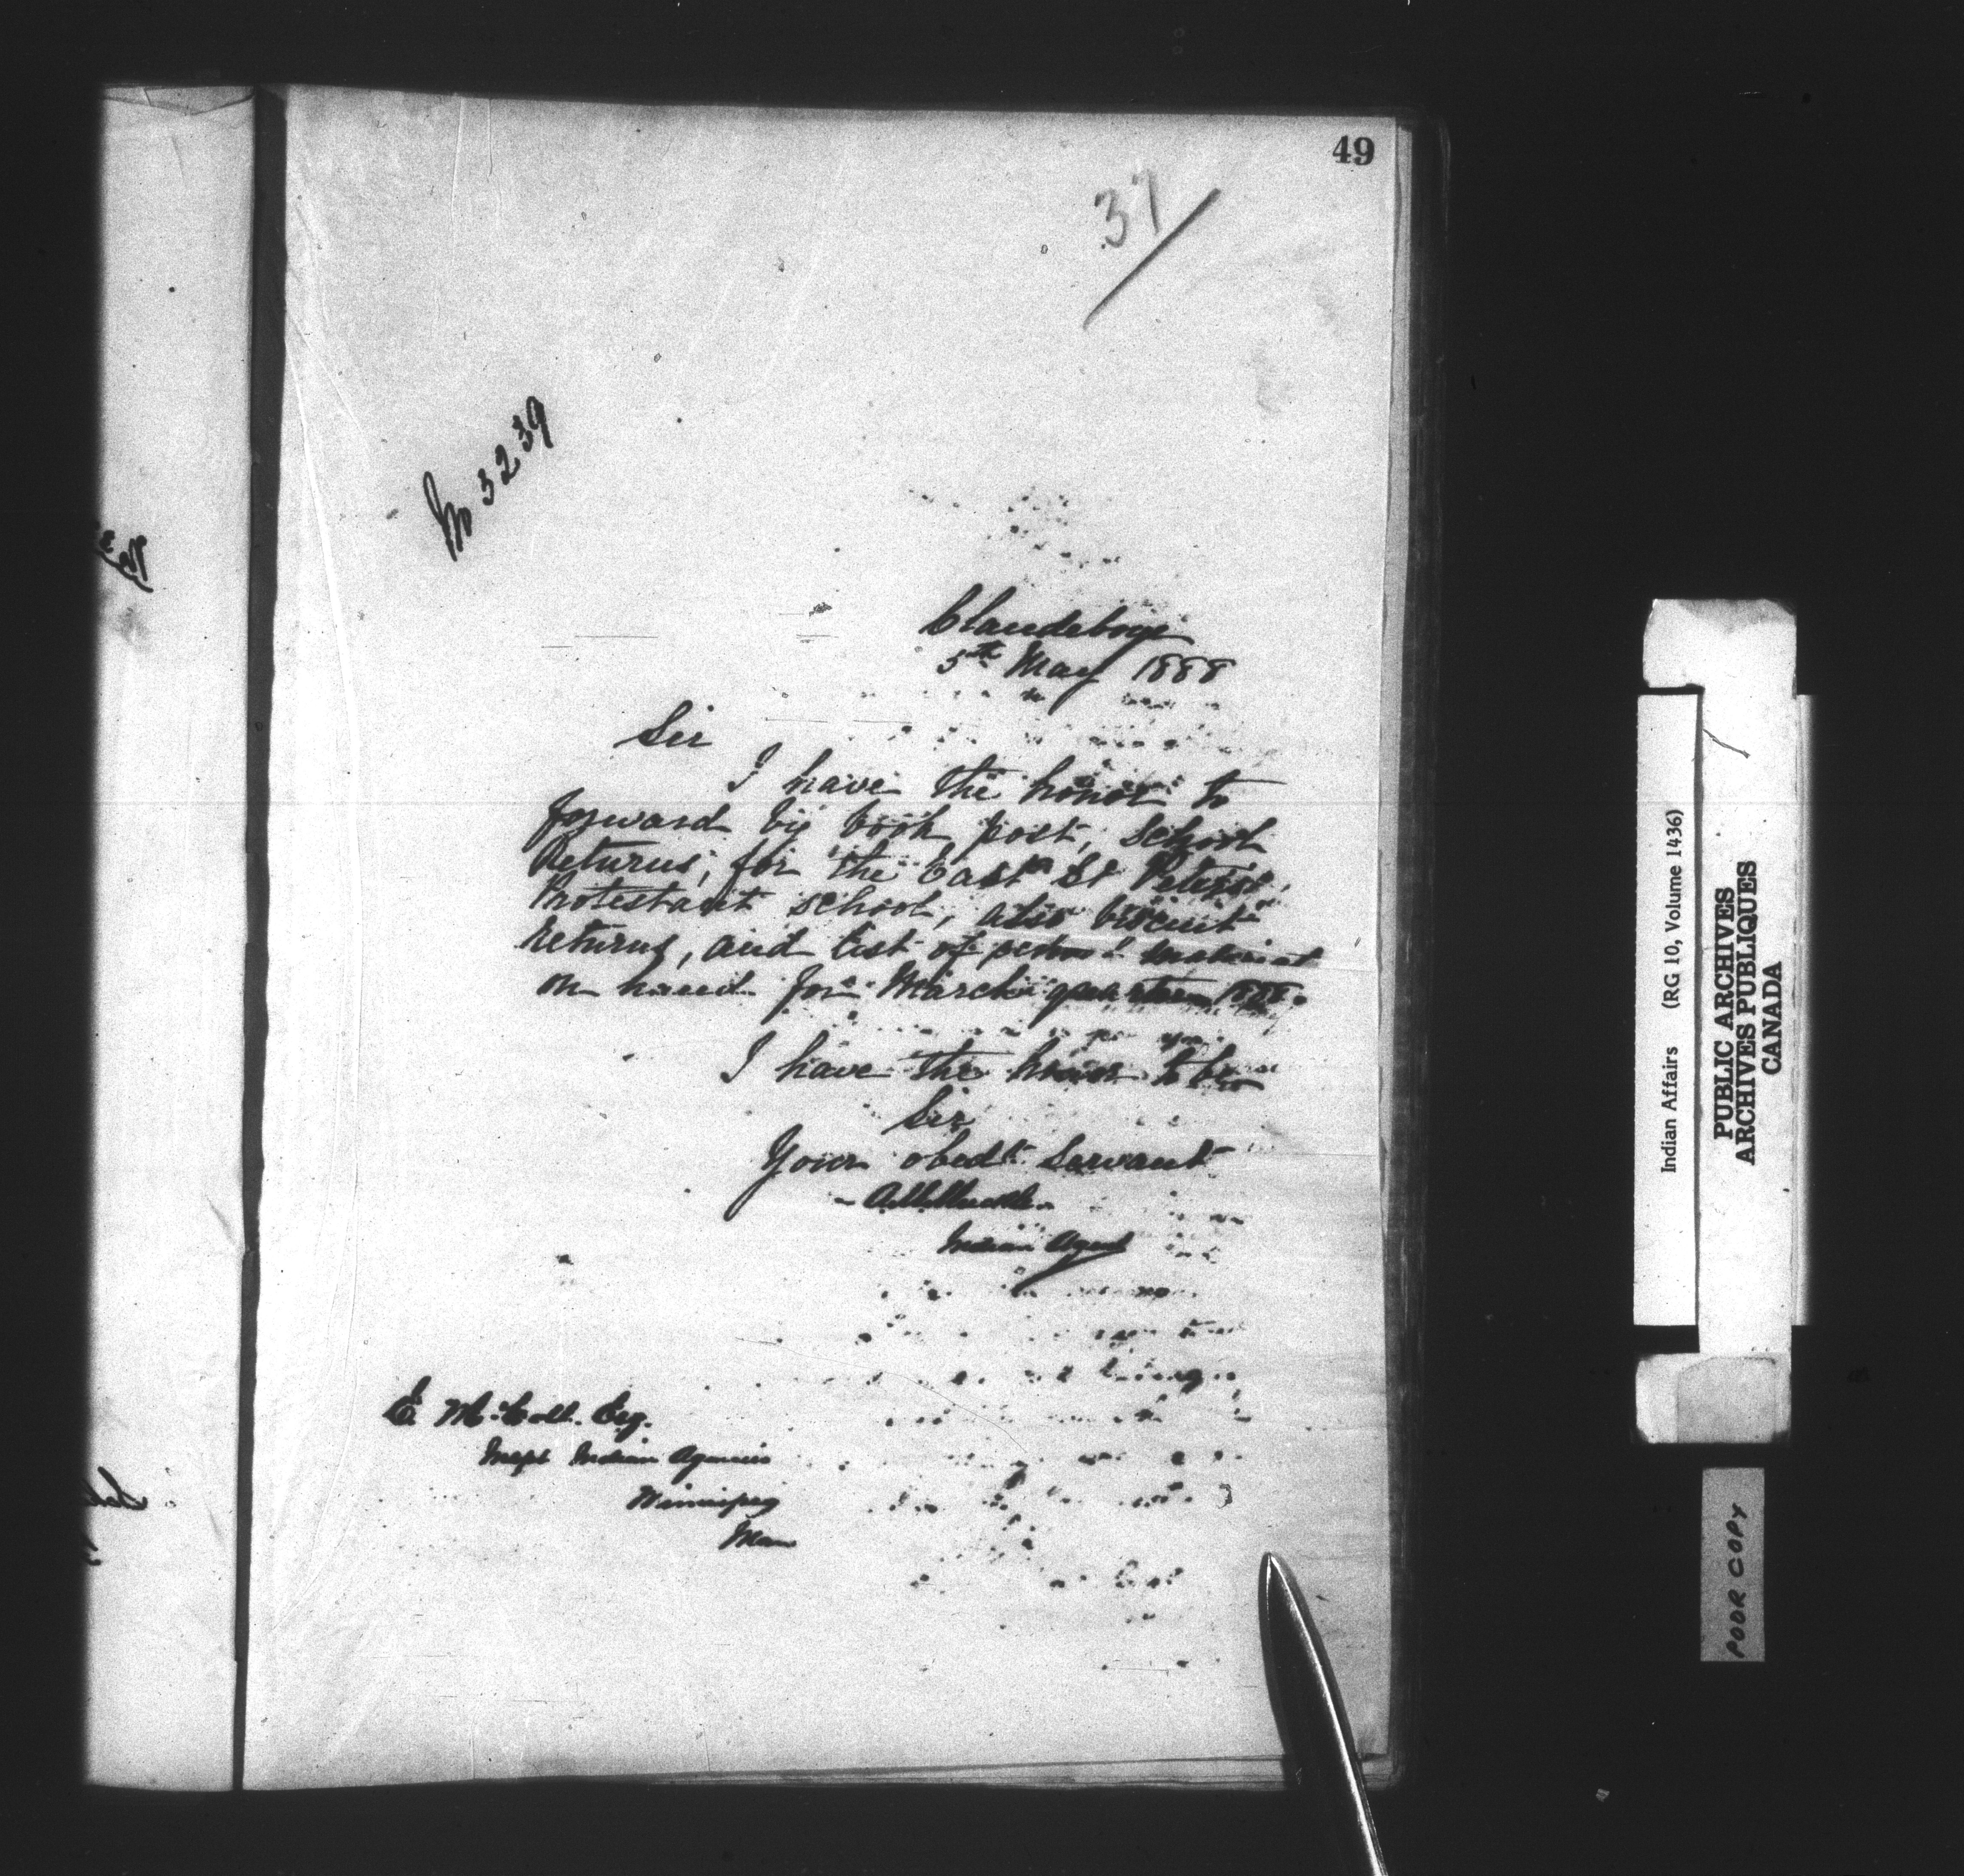 49
37
No 3239
Clandeboye
5th May 1888
Sir
I have the honor to
forward by book post, School
Returns, for the East St Peters
Protestant school, also biscuit
returns, and list of school material
on hand for March quarter 1888.
I have the honor to be
Sir
Your obedt Servant
Indian Agent
E McColl. Esq.
Inspt Indian Agencies
Winnipeg
Man
Indian Affairs (RG 10, Volume 1436)
PUBLIC ARCHIVES
ARCHIVES PUBLIQUES
CANADA
POOR COPY